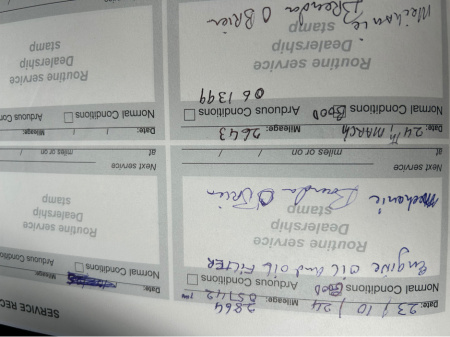 SERVICE REC
Date: 23 / 10 / 24 Mileage: 2864
Normal Conditions GOOD Arduous Conditions
Engine oil and oil FILTER
Routine service
Dealership
stamp
Mechanic Brenda O Brien
Next service
at miles or on / /
Date: Mileage:
Normal Conditions Arduous Conditions
Routine service
Dealership
stamp
Next service
at miles or on / /
Date: 24TH MARCH Mileage: 2643
Normal Conditions GOOD Arduous Conditions
061399
Routine service
Dealership
stamp
Mechanic Brenda O Brien
Date: / / Mileage:
Normal Conditions Arduous Con
Routine service
Dealership
stamp